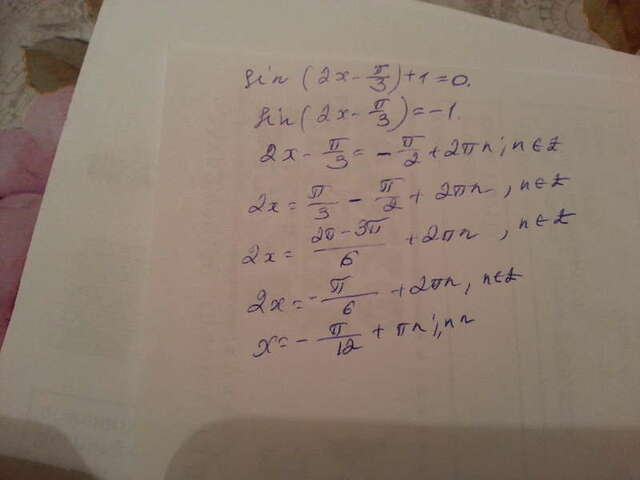 sin(2x - π/3) + 1 = 0.
sin(2x - π/3) = -1.
2x - π/3 = - π/2 + 2πn; n∈Z
2x = π/3 - π/2 + 2πn, n∈Z
2x = (2π - 3π)/6 + 2πn, n∈Z
2x = - π/6 + 2πn, n∈Z
x = - π/12 + πn;